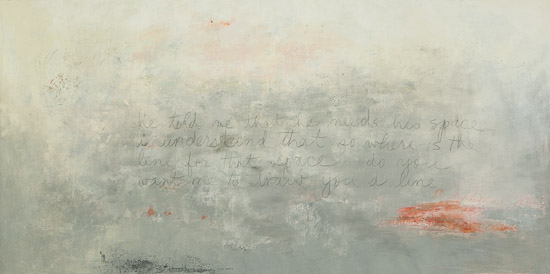 he told me that he needs his space
i understand that so where is the
line for that space do you
want me to draw you a line